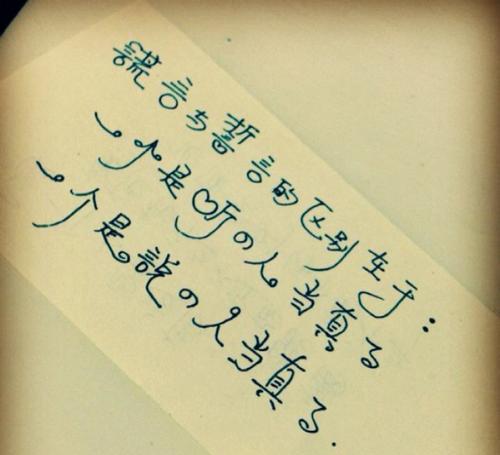 謊言与誓言的区别在于：
一个是听の人当真了
一个是説の人当真了.